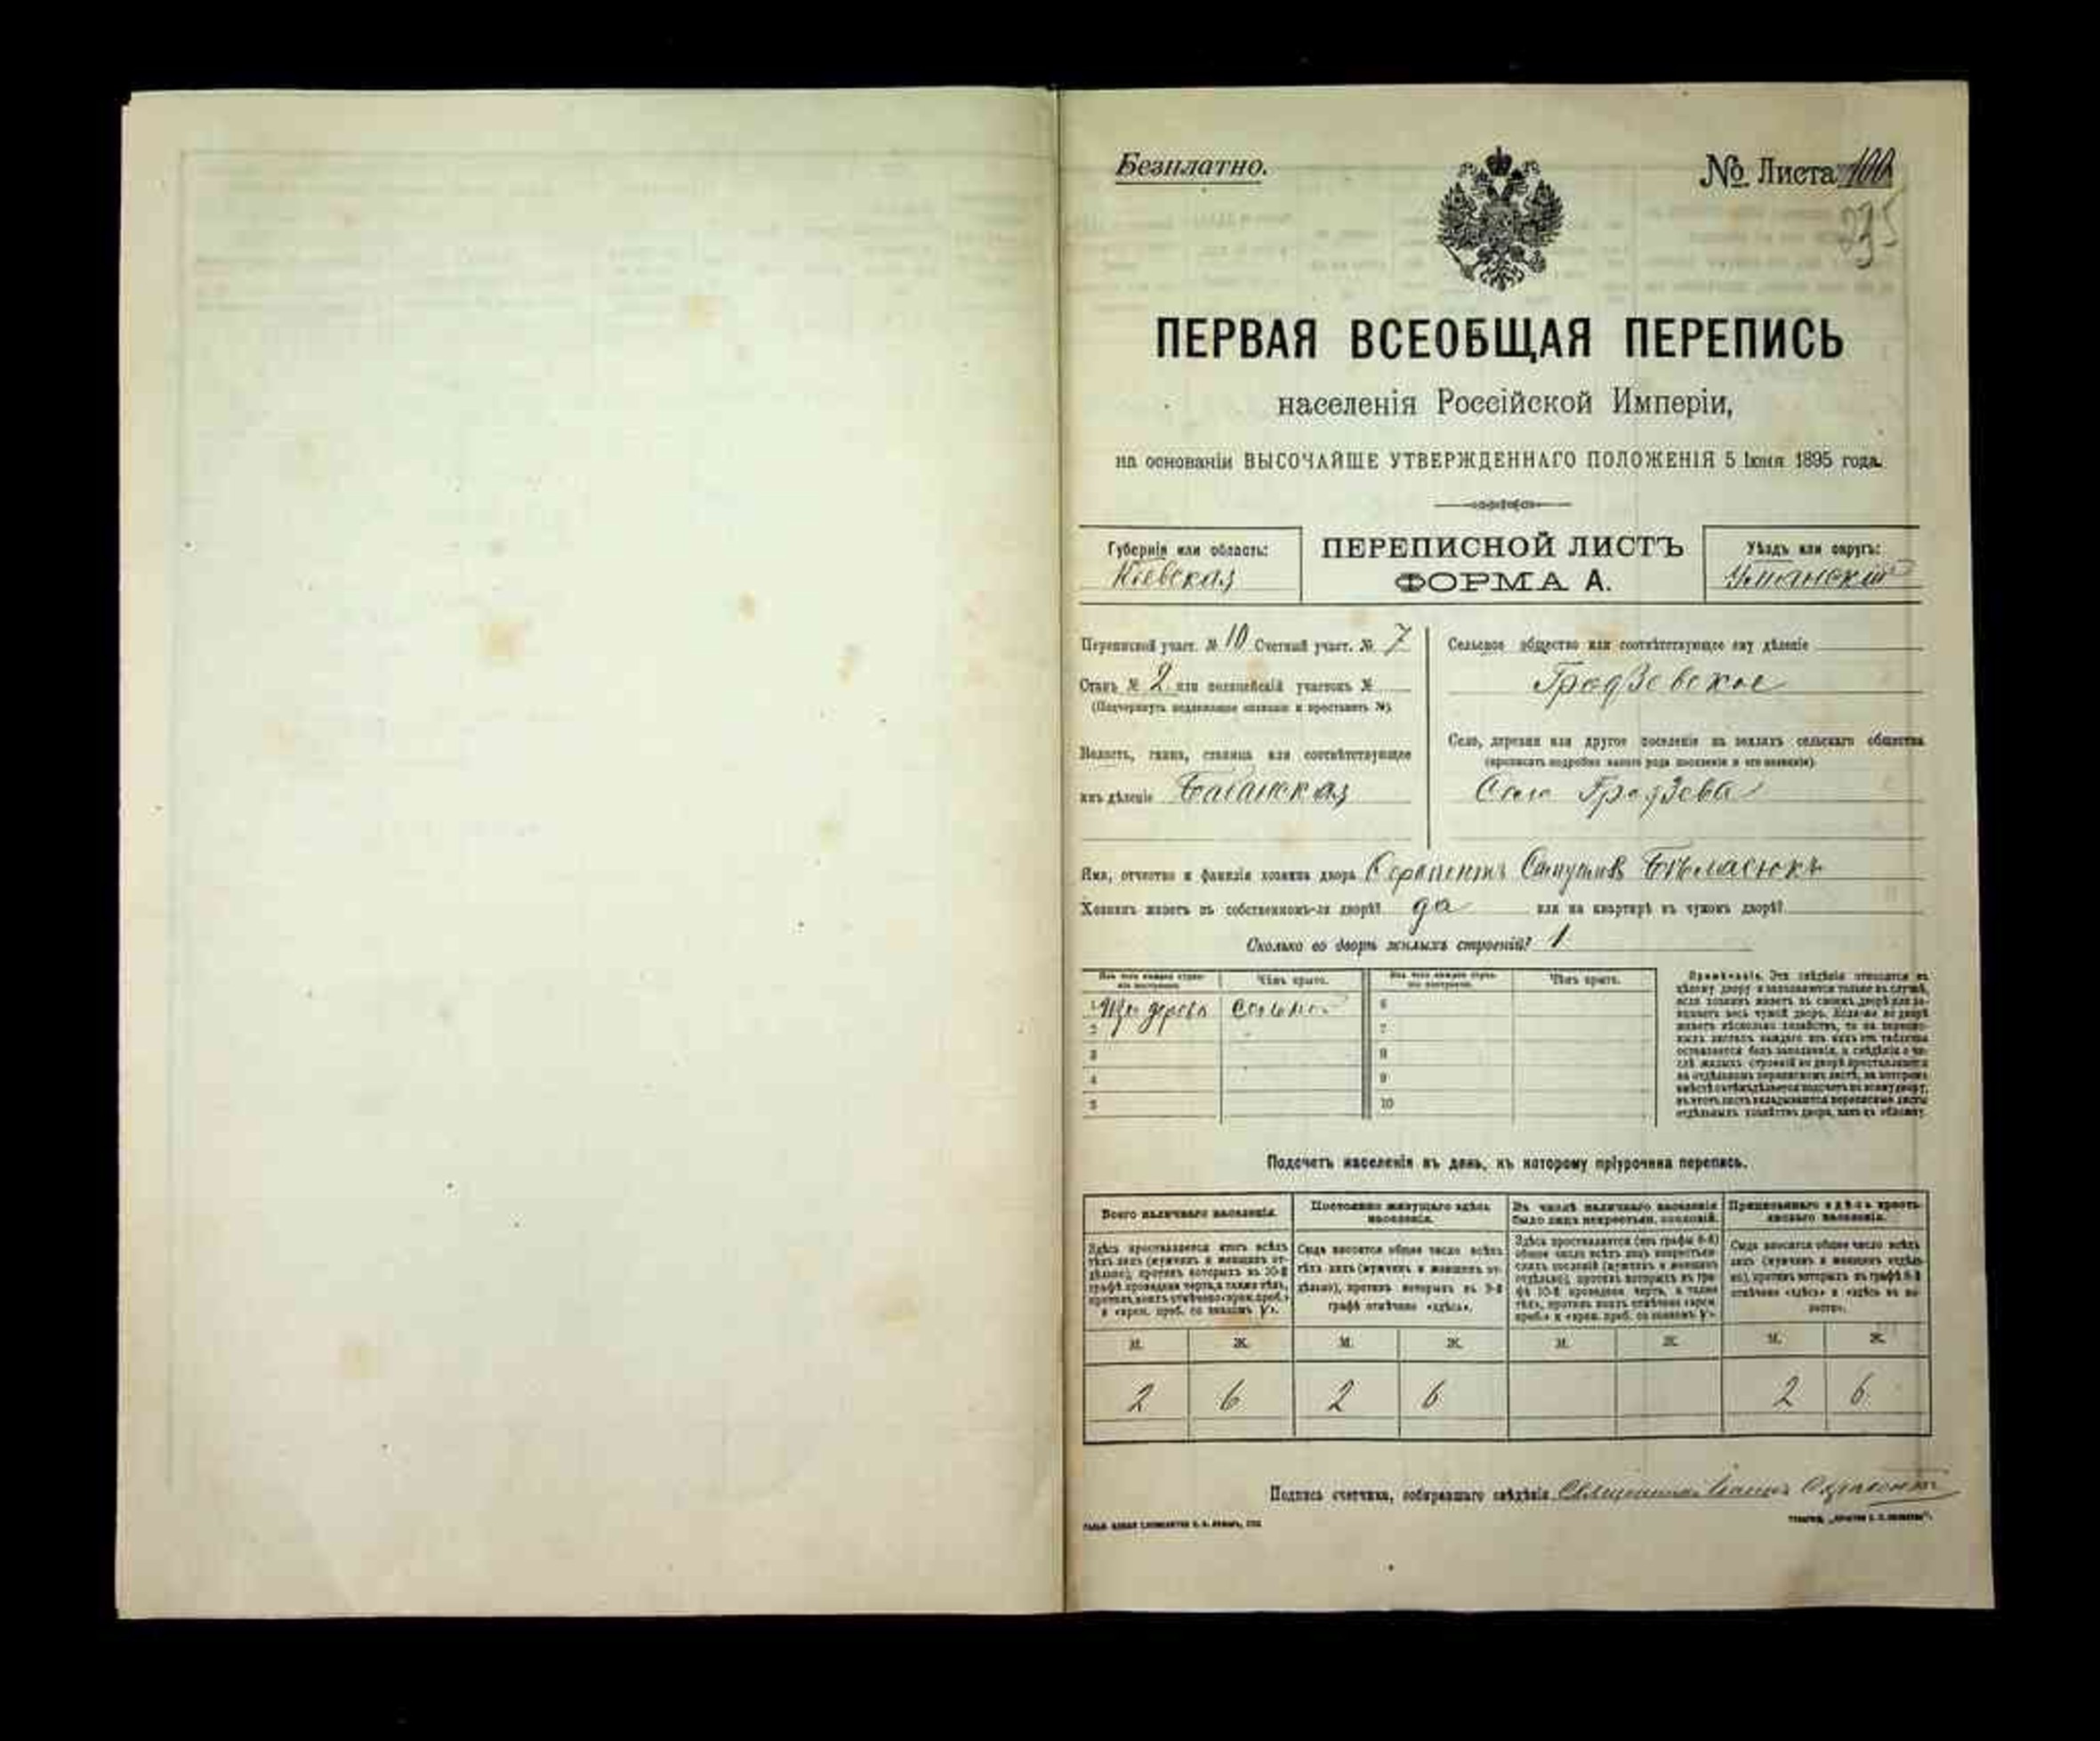 Безплатно.
№ Листа 100
235
ПЕРВАЯ ВСЕОБЩАЯ ПЕРЕПИСЬ
населенія Россійской Имперіи,
на основаніи ВЫСОЧАЙШЕ УТВЕРЖДЕННАГО ПОЛОЖЕНІЯ 5 Іюня 1895 года.
Губернія или область:
Кіевская
ПЕРЕПИСНОЙ ЛИСТЪ
ФОРМА А.
Уѣздъ или округъ:
Уманскій
Переписной участ. № 10 Счетный участ. № 7
Станъ № 2 или полицейскій участокъ №
(Подчеркнуть надлежащее названіе и проставить №).
Волость, гмина, станица или соотвѣтствующее
имъ дѣленіе Бабанская
Сельское общество или соотвѣтствующее ему дѣленіе
Гродзевское
Село, деревня или другое поселеніе на земляхъ сельскаго общества
(прописать подробно какого рода поселеніе и его названіе)
Село Гродзева
Имя, отчество и фамилія хозяина двора Бѣласюкъ
Хозяинъ живетъ въ собственномъ-ли дворѣ? да или на квартирѣ въ чужомъ дворѣ?
Сколько во дворѣ жилыхъ строеній? 1
Изъ чего каждое строеніе построено. Чѣмъ крыто. Изъ чего каждое строеніе построено. Чѣмъ крыто.
1 Изъ дерева Соломой 6
2 7
3 8
4 9
5 10
Примѣчаніе. Эти свѣдѣнія относятся къ
цѣлому двору и заполняются только въ случаѣ,
если хозяинъ живетъ въ своемъ дворѣ или за-
нимаетъ весь чужой дворъ. Если-же во дворѣ
живетъ нѣсколько хозяйствъ, то на перепис-
ныхъ листахъ каждаго изъ нихъ эта табличка
оставляется безъ заполненія, а свѣдѣнія о чи-
слѣ жилыхъ строеній во дворѣ проставляются
на отдѣльномъ переписномъ листѣ, на которомъ
вмѣстѣ съ тѣмъ дѣлается подсчетъ по всему двору;
въ этотъ листъ вкладываются переписные листы
отдѣльныхъ хозяйствъ двора, какъ въ обложку.
Подсчетъ населенія въ день, къ которому пріурочена перепись.
Всего наличнаго населенія.
Здѣсь проставляется итогъ всѣхъ
тѣхъ лицъ (мужчинъ и женщинъ от-
дѣльно), противъ которыхъ въ 10-й
графѣ проведена черта, а также тѣхъ,
противъ коихъ отмѣчено «врем. преб.»
и «врем. преб. со знакомъ V».
Постоянно живущаго здѣсь
населенія.
Сюда вносится общее число всѣхъ
тѣхъ лицъ (мужчинъ и женщинъ от-
дѣльно), противъ которыхъ въ 9-й
графѣ отмѣчено «здѣсь».
Въ числѣ наличнаго населенія
было лицъ некрестьян. сословій.
Здѣсь проставляется (изъ графы 6-й)
общее число всѣхъ лицъ некрестьян-
скихъ сословій (мужчинъ и женщинъ
отдѣльно), противъ которыхъ въ гра-
фѣ 10-й проведена черта, а также
тѣхъ, противъ коихъ отмѣчено «врем.
преб.» и «врем. преб. со знакомъ V».
Приписаннаго здѣсь кресть-
янскаго населенія.
Сюда вносится общее число всѣхъ
лицъ (мужчинъ и женщинъ отдѣль-
но), противъ которыхъ въ графѣ 8-й
отмѣчено «здѣсь» и «здѣсь въ во-
лости».
М. Ж. М. Ж. М. Ж. М. Ж.
2 6 2 6 2 6
Подпись счетчика, собиравшаго свѣдѣнія Священникъ